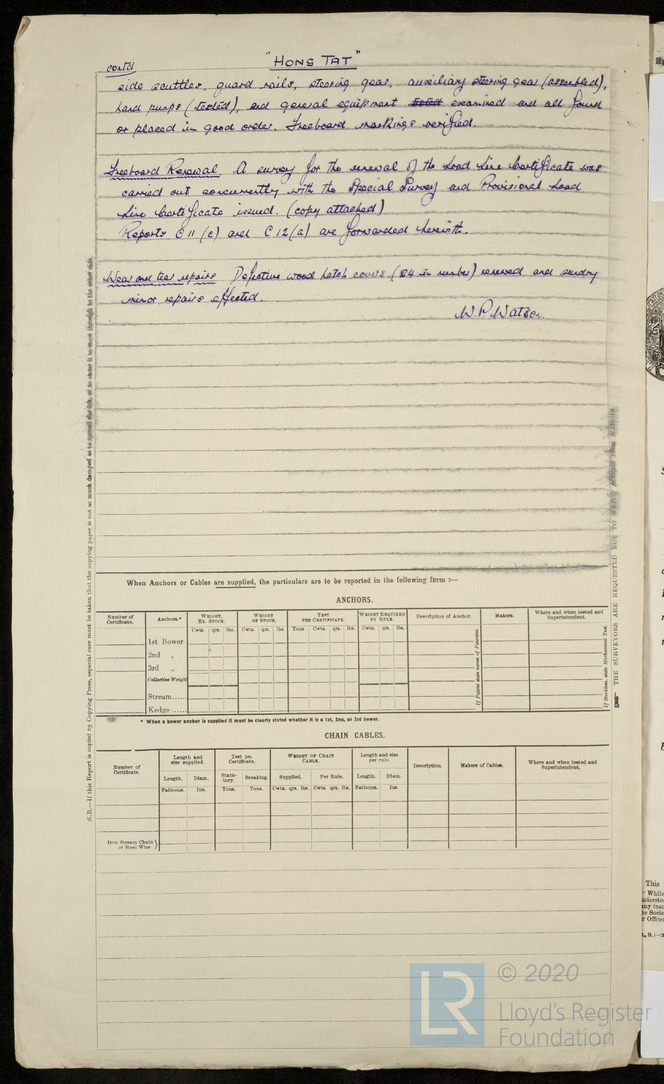 contd
"HONG TAT"
side scuttles, guard rails, steering gear, auxiliary steering gear (assembled),
hand pumps (tested), and general equipment tested examined and all found
or placed in good order. Freeboard markings verified.
Freeboard Renewal. A survey for the renewal of the Load Line Certificate was
carried out concurrently with the Special Survey and Provisional Load
Line Certificate issued. (copy attached)
Reports C 11 (c) and C 12 (a) are forwarded herewith.
Wear and tear repairs Defective wood hatch covers (24 in number) renewed and sundry
minor repairs effected.
W.P. Watson.
N.B.—If this Report is copied by Copying Press, especial care must be taken that the copying paper is not so much damped as to
THE SURVEYORS ARE REQUESTED NOT TO WRITE ACROSS THIS MARGIN
When Anchors or Cables are supplied, the particulars are to be reported in the following form :—
ANCHORS.
Number of Certificate. Anchors.* WEIGHT, EX. STOCK. WEIGHT OF STOCK. TEST PER CERTIFICATE. WEIGHT REQUIRED BY RULE. Description of Anchor. Makers. Where and when tested and Superintendent.
Cwts. qrs. lbs. Cwts. qrs. lbs. Tons Cwts. qrs. lbs. Cwts. qrs. lbs.
1st Bower
2nd „
3rd „
Collective Weight
Stream......
Kedge......
If Patent state name of Patentee.
If Stockless, state Mechanical Test.
* When a bower anchor is supplied it must be clearly stated whether it is a 1st, 2nd, or 3rd bower.
CHAIN CABLES.
Number of Certificate. Length and size supplied. Test per Certificate. WEIGHT OF CHAIN CABLE. Length and size per rule. Description. Makers of Cables. Where and when tested and Superintendent.
Length. Diam. Statutory. Breaking. Supplied. Per Rule. Length. Diam.
Fathoms. Ins. Tons. Tons. Cwts. qrs. lbs. Cwts. qrs. lbs. Fathoms. Ins.
Iron Stream Chain
or Steel Wire
LR
© 2020
Lloyd's Register
Foundation
This
While